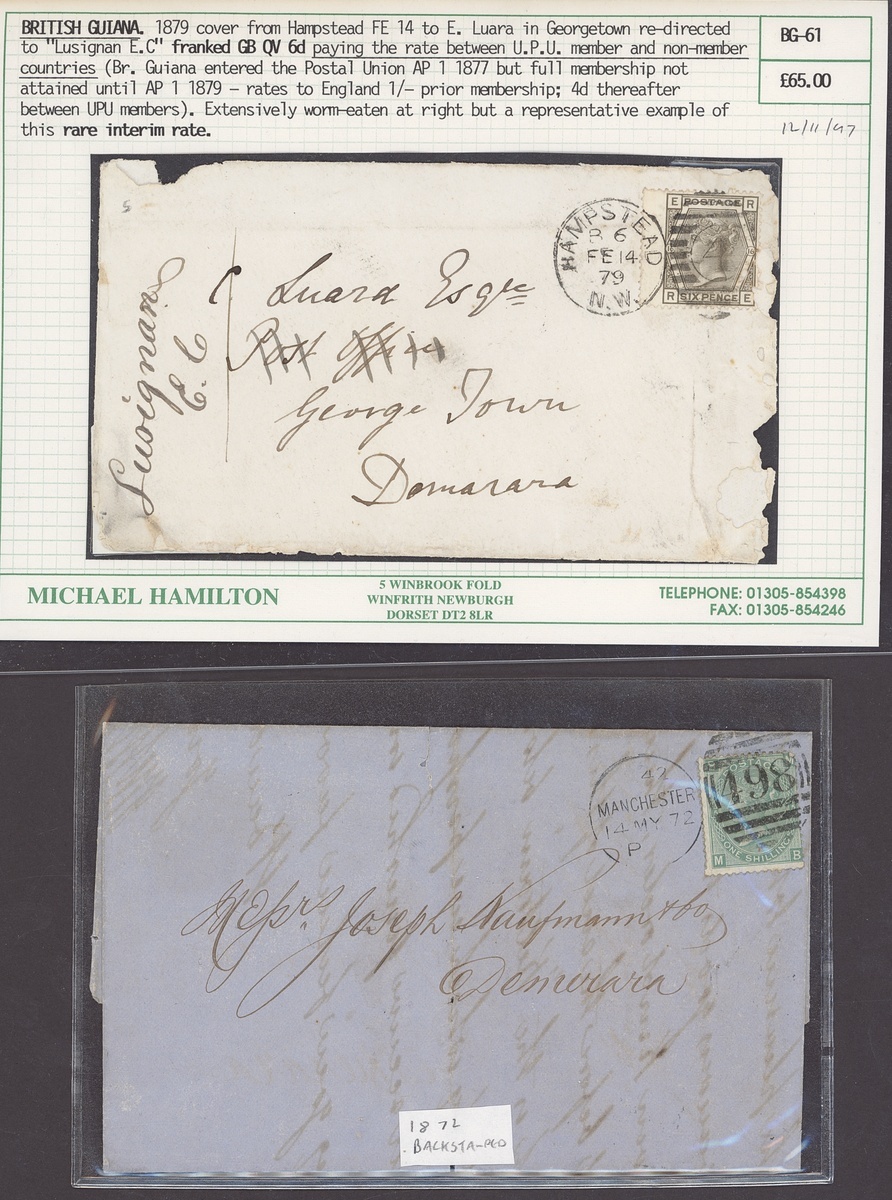 BRITISH GUIANA. 1879 cover from Hampstead FE 14 to E. Luara in Georgetown re-directed
to "Lusignan E.C" franked GB QV 6d paying the rate between U.P.U. member and non-member
countries (Br. Guiana entered the Postal Union AP 1 1877 but full membership not
attained until AP 1 1879 – rates to England 1/– prior membership; 4d thereafter
between UPU members). Extensively worm-eaten at right but a representative example of
this rare interim rate.
BG-61
£65.00
12/11/97
HAMPSTEAD
B 6
FE 14
79
N.W.
E POSTAGE R
R SIX PENCE E
Luard Esqre
Post Office
George Town
Demarara
Lusignan
E.C
MICHAEL HAMILTON
5 WINBROOK FOLD
WINFRITH NEWBURGH
DORSET DT2 8LR
TELEPHONE: 01305-854398
FAX: 01305-854246
42
MANCHESTER
14 MY 72
P
POSTAGE
498
ONE SHILLING
M B
Messrs Joseph Kaufmann & Co
Demerara
1872
BACKSTA-PED